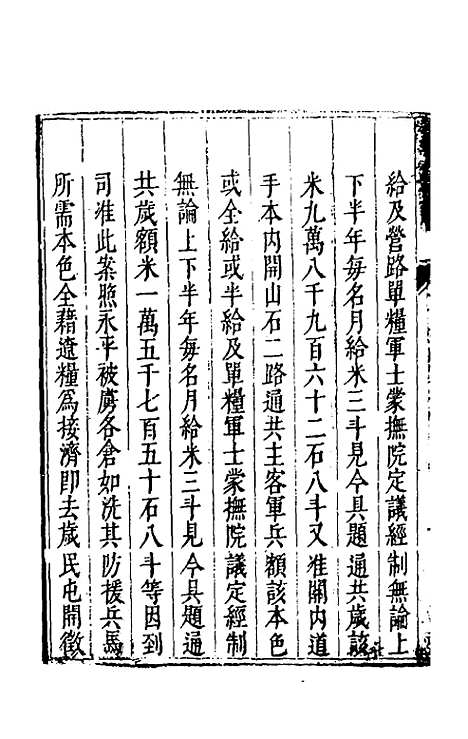 給及營路單糧軍士蒙撫院定議經制無論上
下半年每名月給米三斗見今具題通共歲該
米九萬八千九百六十二石八斗又准關內道
手本內開山石二路通共主客軍兵額該本色
或全給或半給及單糧軍士蒙撫院議定經制
無論上下半年每名月給米三斗見今具題通
共歲額米一萬五千七百五十石八斗等因到
司准此案照永平被虜各倉如洗其防援兵馬
所需本色全藉遼糧為接濟即去歲民屯開徵